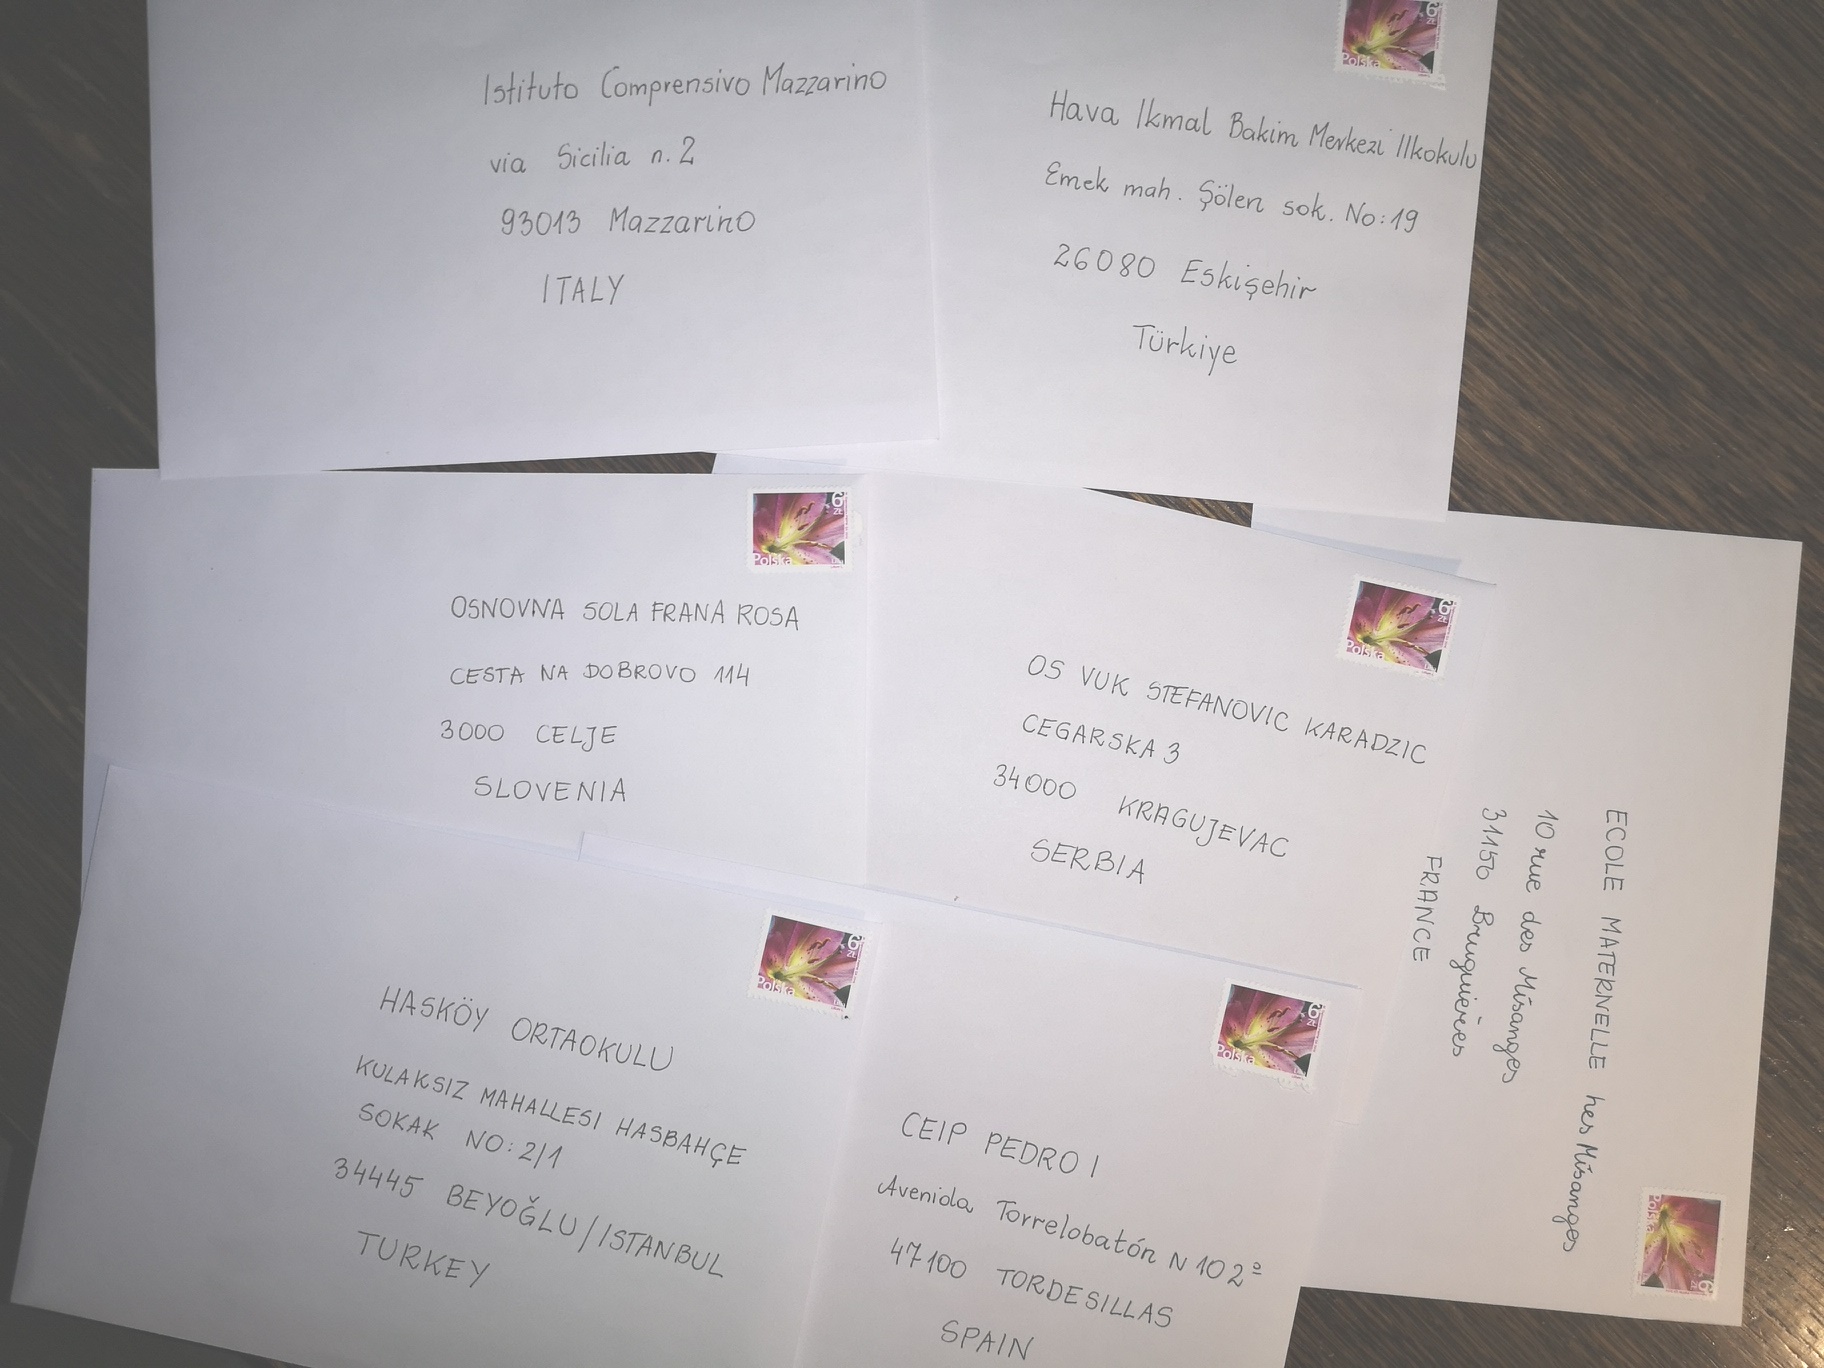 Istituto Comprensivo Mazzarino
via Sicilia n. 2
93013 Mazzarino
ITALY
6
ZŁ
Polska
Hava Ikmal Bakim Merkezi Ilkokulu
Emek mah. Şölen sok. No:19
26080 Eskişehir
Türkiye
6
ZŁ
Polska
OSNOVNA SOLA FRANA ROSA
CESTA NA DOBROVO 114
3000 CELJE
SLOVENIA
6
ZŁ
Polska
OS VUK STEFANOVIC KARADZIC
CEGARSKA 3
34000 KRAGUJEVAC
SERBIA
ECOLE MATERNELLE hes Mésanges
10 rue des Mésanges
31150 Bruguières
FRANCE
6
ZŁ
Polska
6
ZŁ
Polska
HASKÖY ORTAOKULU
KULAKSIZ MAHALLESI HASBAHÇE
SOKAK NO:2/1
34445 BEYOĞLU/ISTANBUL
TURKEY
6
ZŁ
Polska
CEIP PEDRO I
Avenida Torrelobatón N 102º
47100 TORDESILLAS
SPAIN